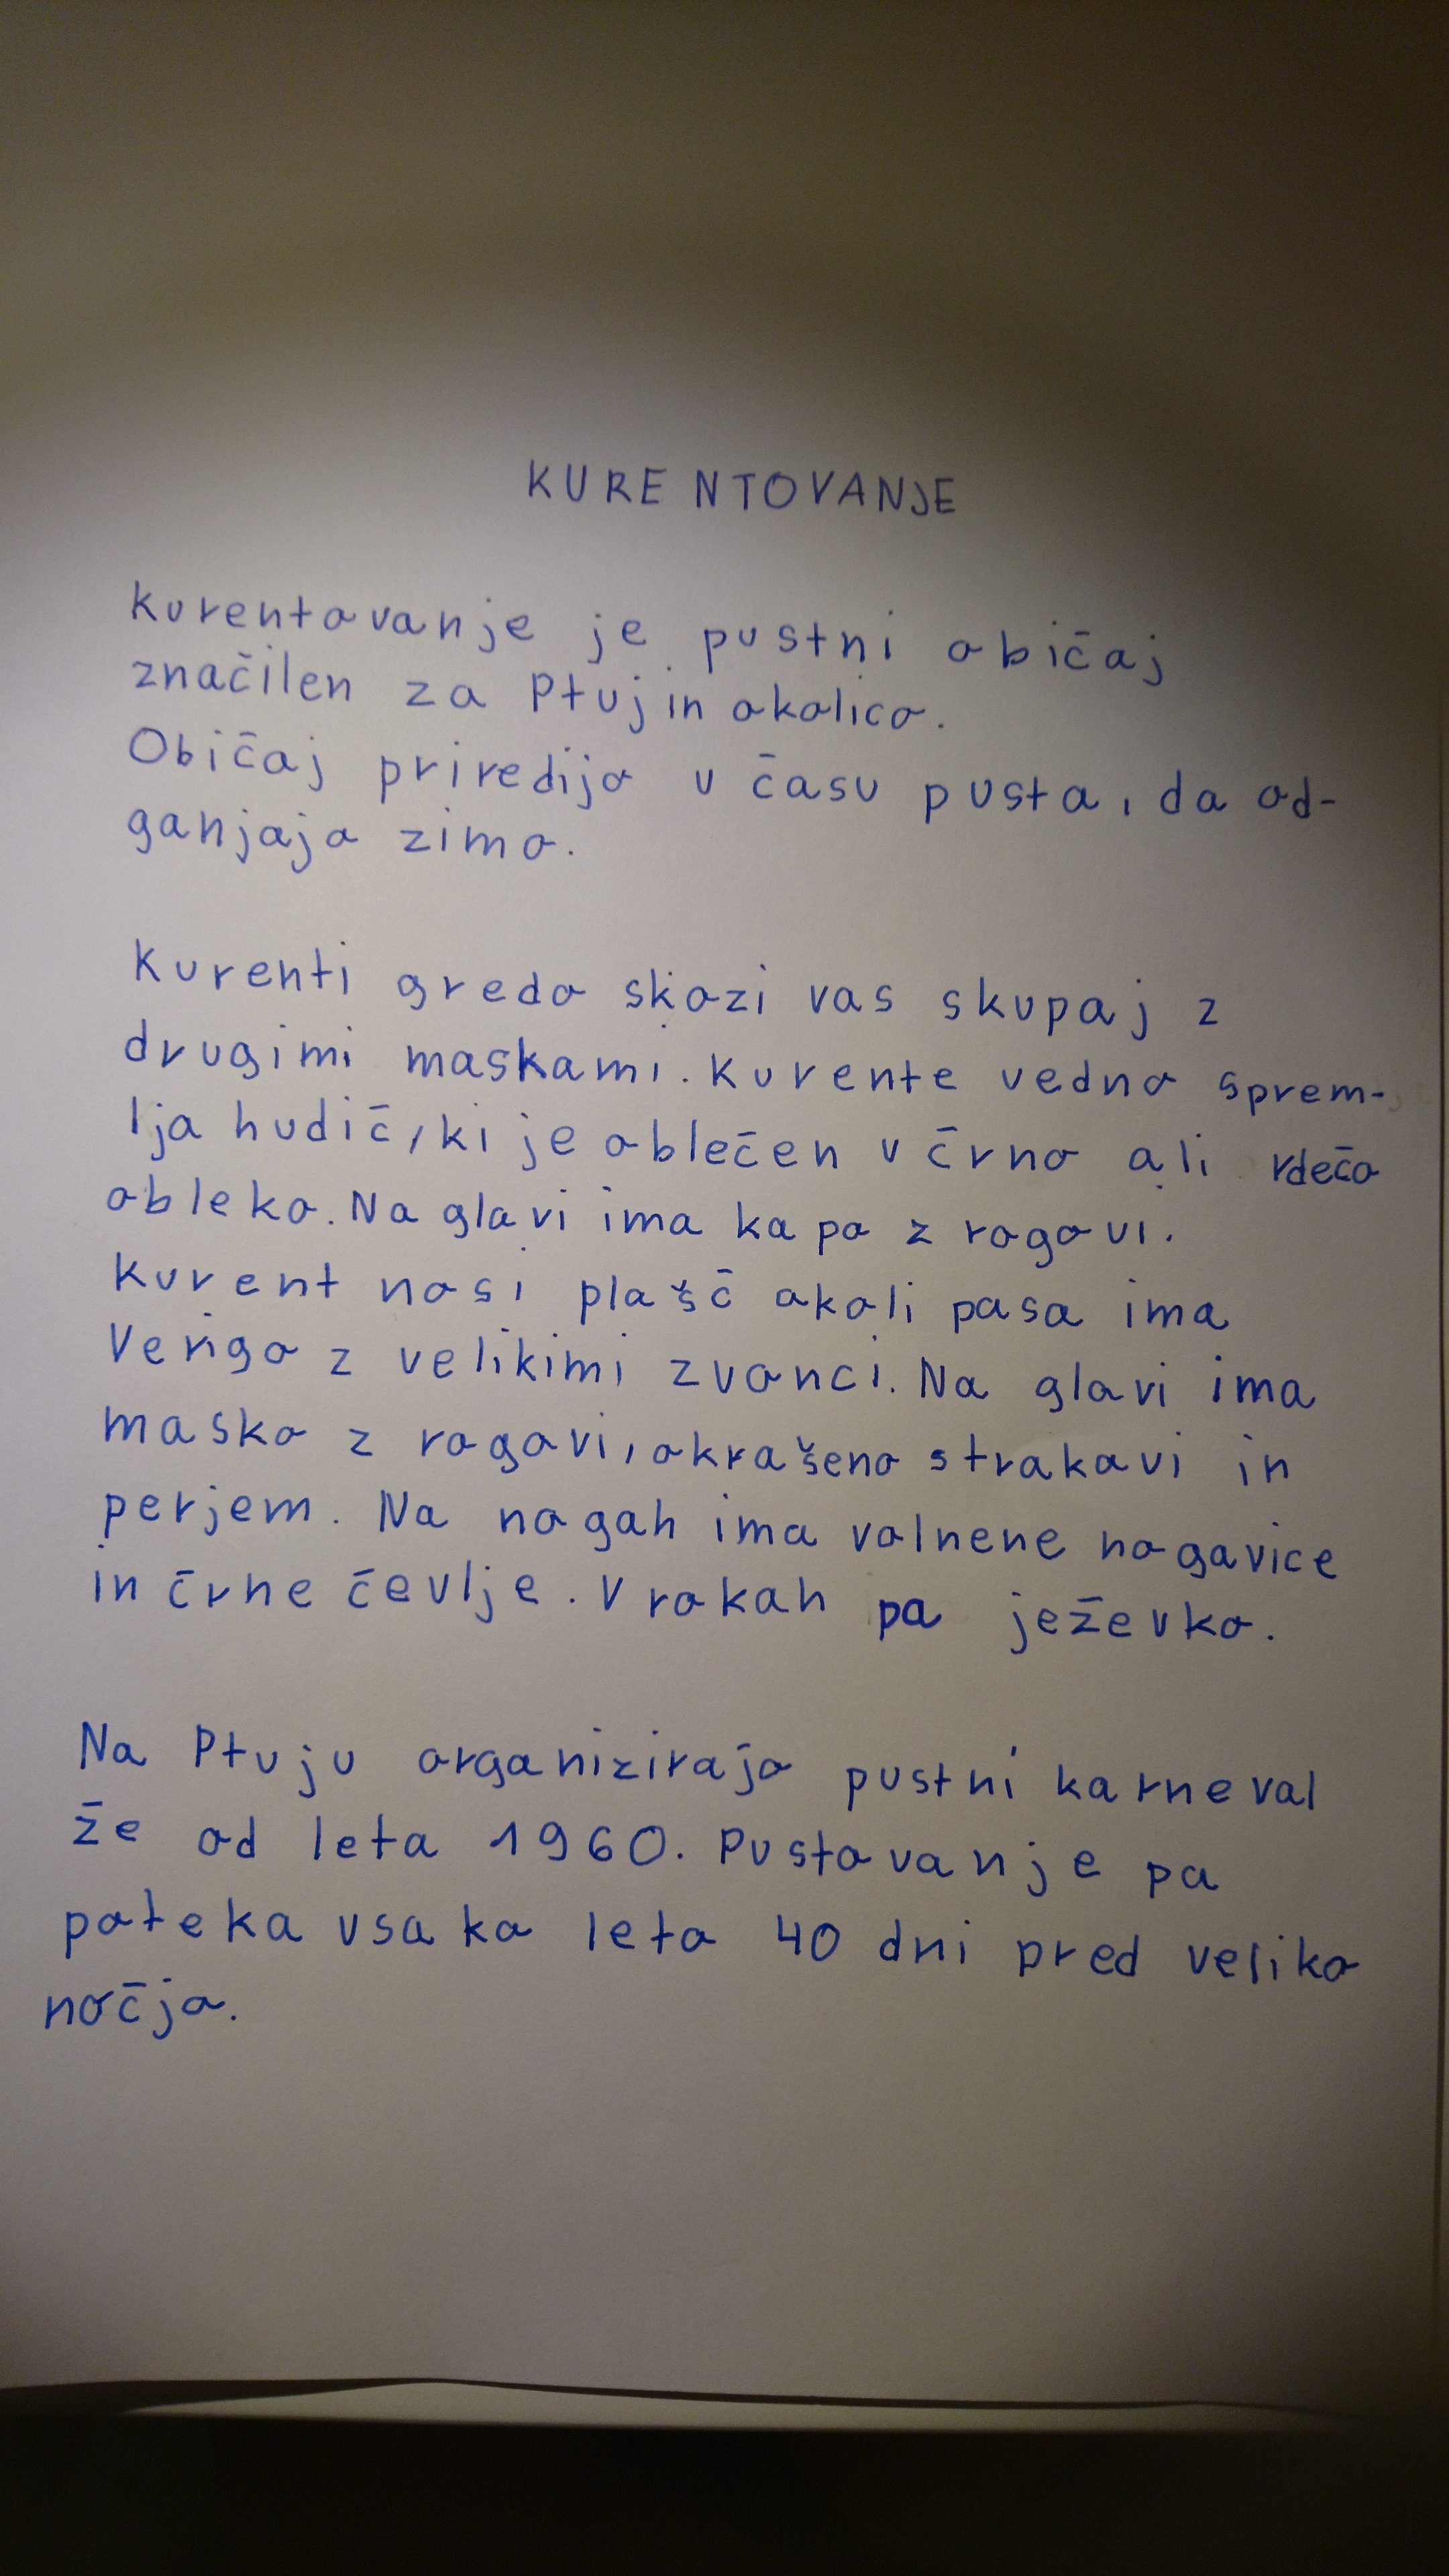 KURENTOVANJE
Kurentovanje je pustni običaj
značilen za Ptuj in okolico.
Običaj priredijo v času pusta, da od-
ganjajo zimo.
Kurenti gredo skozi vas skupaj z
drugimi maskami. Kurente vedno sprem-
lja hudič, ki je oblečen v črno ali rdečo
obleko. Na glavi ima kapo z rogovi.
Kurent nosi plašč okoli pasa ima
Verigo z velikimi zvonci. Na glavi ima
masko z rogovi, okrašeno s trakovi in
perjem. Na nogah ima volnene nogavice
in črne čevlje. V rokah pa ježevko.
Na Ptuju organizirajo pustni karneval
že od leta 1960. Pustovanje pa
poteka vsako leto 40 dni pred veliko
nočjo.